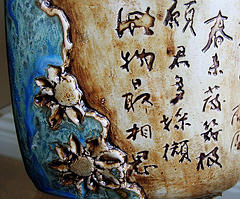 春來發幾枝
願君多採擷
此物最相思